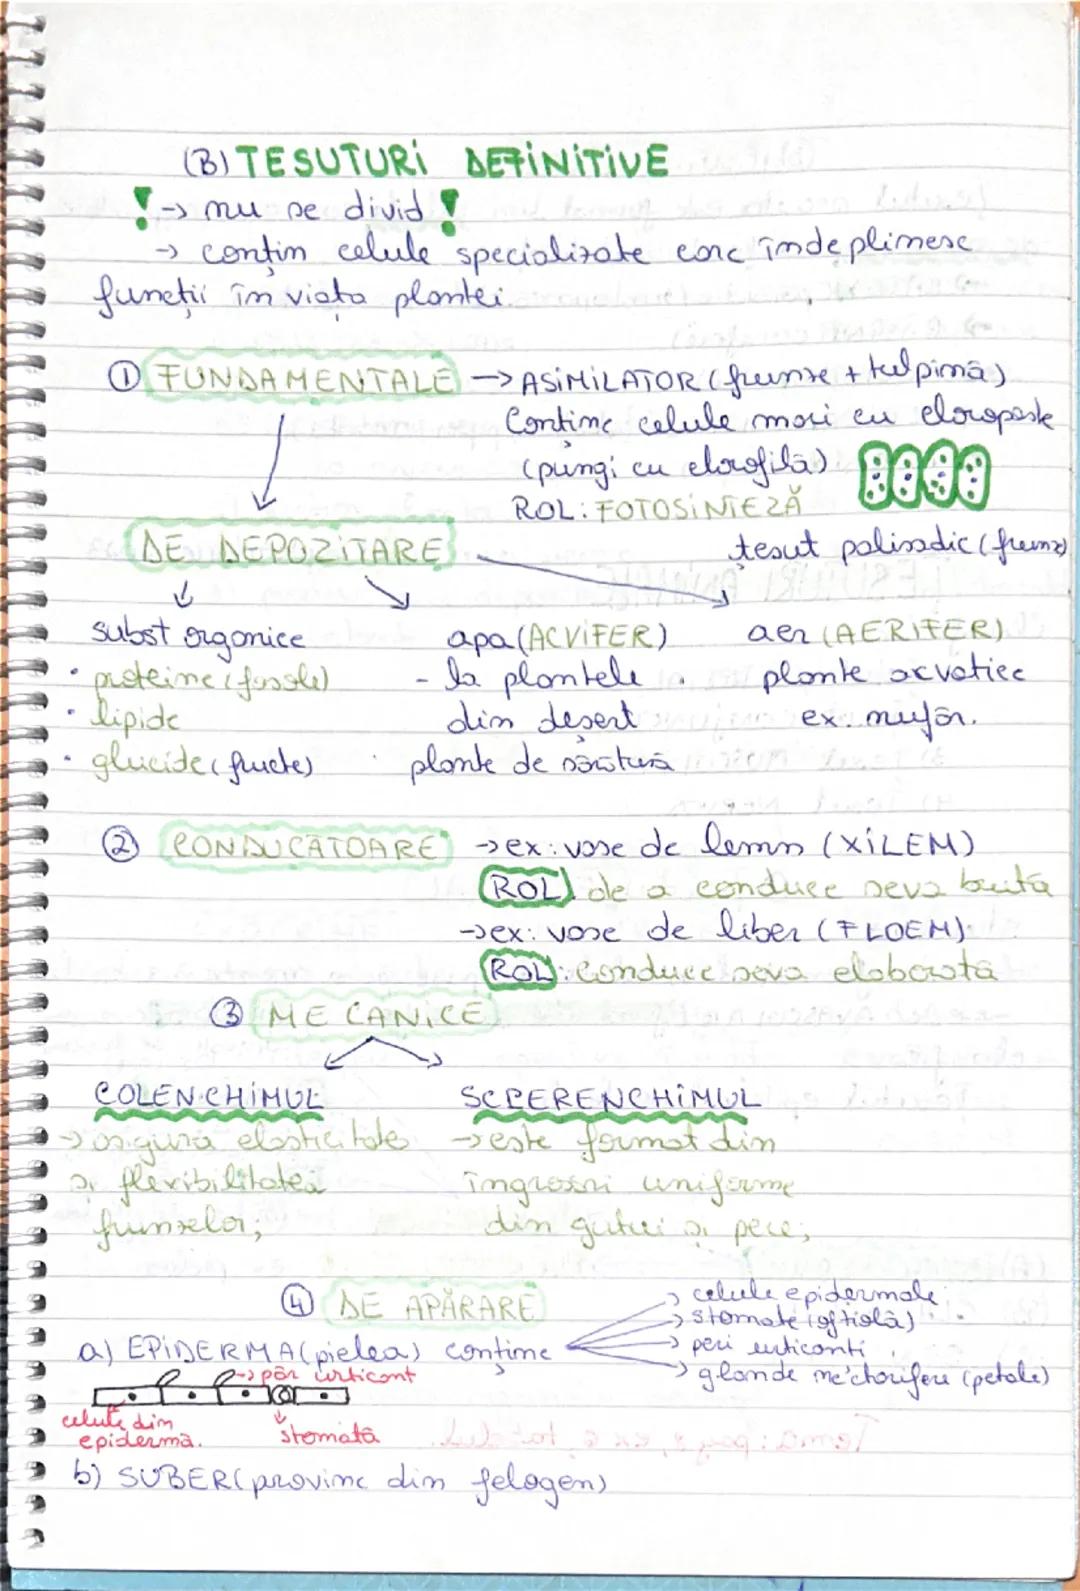 (B) TESUTURI DEFINITIVE
! → nu se divid !
→ conțin celule specializate care îndeplinesc
funcții în viața plantei.
① FUNDAMENTALE → ASIMILATOR (frunze + tulpină)
Conține celule mari cu cloroplaste
(pungi cu clorofilă)
ROL: FOTOSINTEZĂ
DE DEPOZITARE
țesut palisadic (frunze)
subst organice
• proteine (fasole)
• lipide
• glucide (fructe)
apa (ACVIFER)
- la plantele
din deșert
plante de sărătură
aer (AERIFER)
plante acvatice
ex. nufăr.
② CONDUCĂTOARE → ex: vase de lemn (XILEM)
ROL: de a conduce seva brută
→ ex: vase de liber (FLOEM)
ROL: Conduce seva elaborată
③ MECANICE
COLENCHIMUL
→ asigură elasticitate
și flexibilitatea
frunzelor;
SCLERENCHIMUL
→ este format din
îngroșări uniforme
din gutui și pere;
④ DE APĂRARE
a) EPIDERMA (pielea) conține
→ celule epidermale
→ stomate (ostiolă)
→ peri urticanți
→ glande nectarifere (petale)
→ păr urticant
celule din
epidermă.
stomată
b) SUBER (provine din felogen)